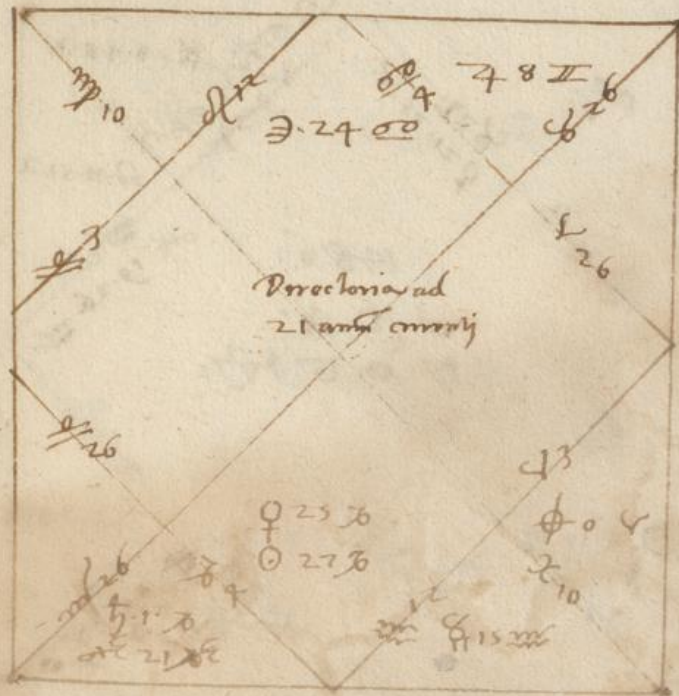 ♍ 10
♌ 12
♋ 4
♃ 8 ♊
☽ 24 ♋
♉ 26
♎ 3
♈ 26
Directoria ad
21 annũ currēti
♎ 26
♈ 3
♀ 25 ♑
☉ 27 ♑
⊕ 0 ♈
♓ 10
♏ 26
♑ 4
♄ 1 ♑
♒ 12
☿ 15 ♒